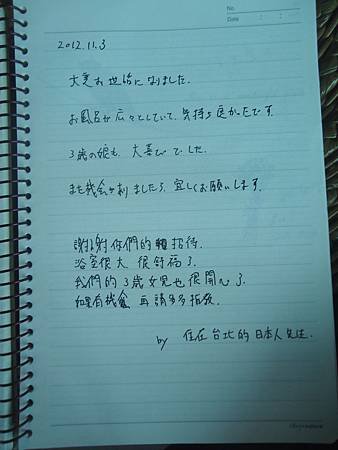 No.
Date
2012.11.3
大変お世話になりました.
お風呂が広々としていて、気持ち良かったです.
3歳の娘も、大喜びでした.
また機会が有りましたら、宜しくお願いします.
謝謝你們的招待.
浴室很大 很舒福了.
我們的3歲女兒也很開心了.
如果有機會 再請多多指教.
by 住在台北的日本人先生.